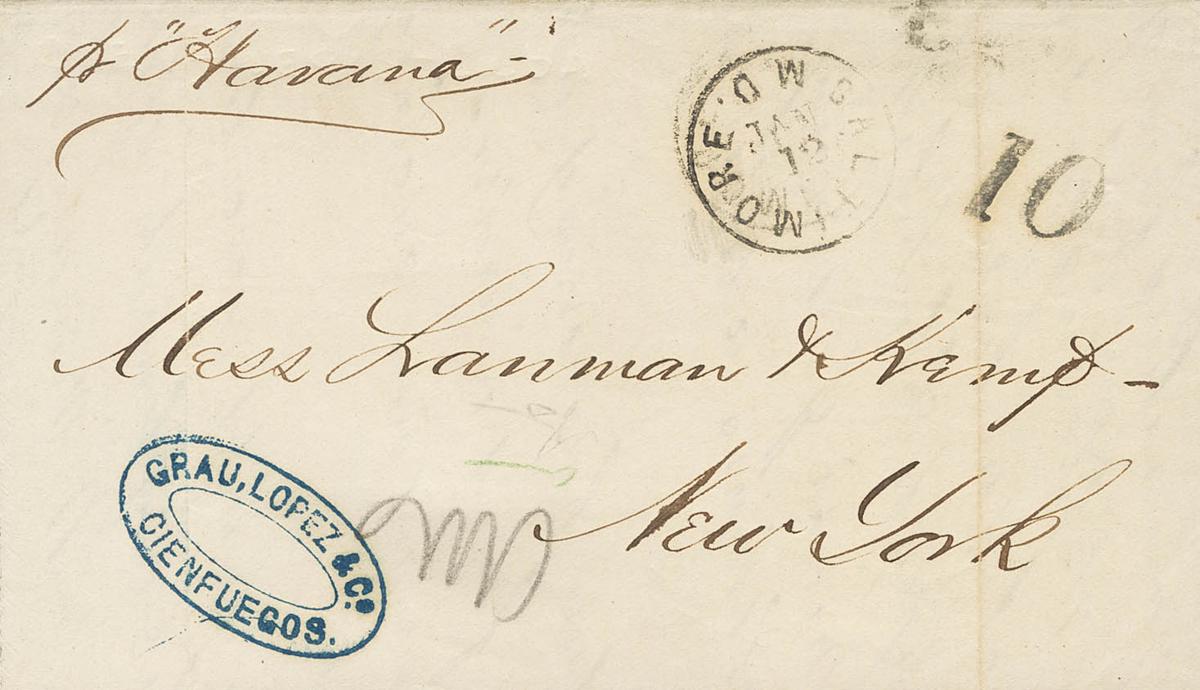 p "Havana"
BALTIMORE. MD.
JAN
12
10
Mess Lanman & Kemp -
New York
GRAU, LOPEZ & Cº
CIENFUEGOS.